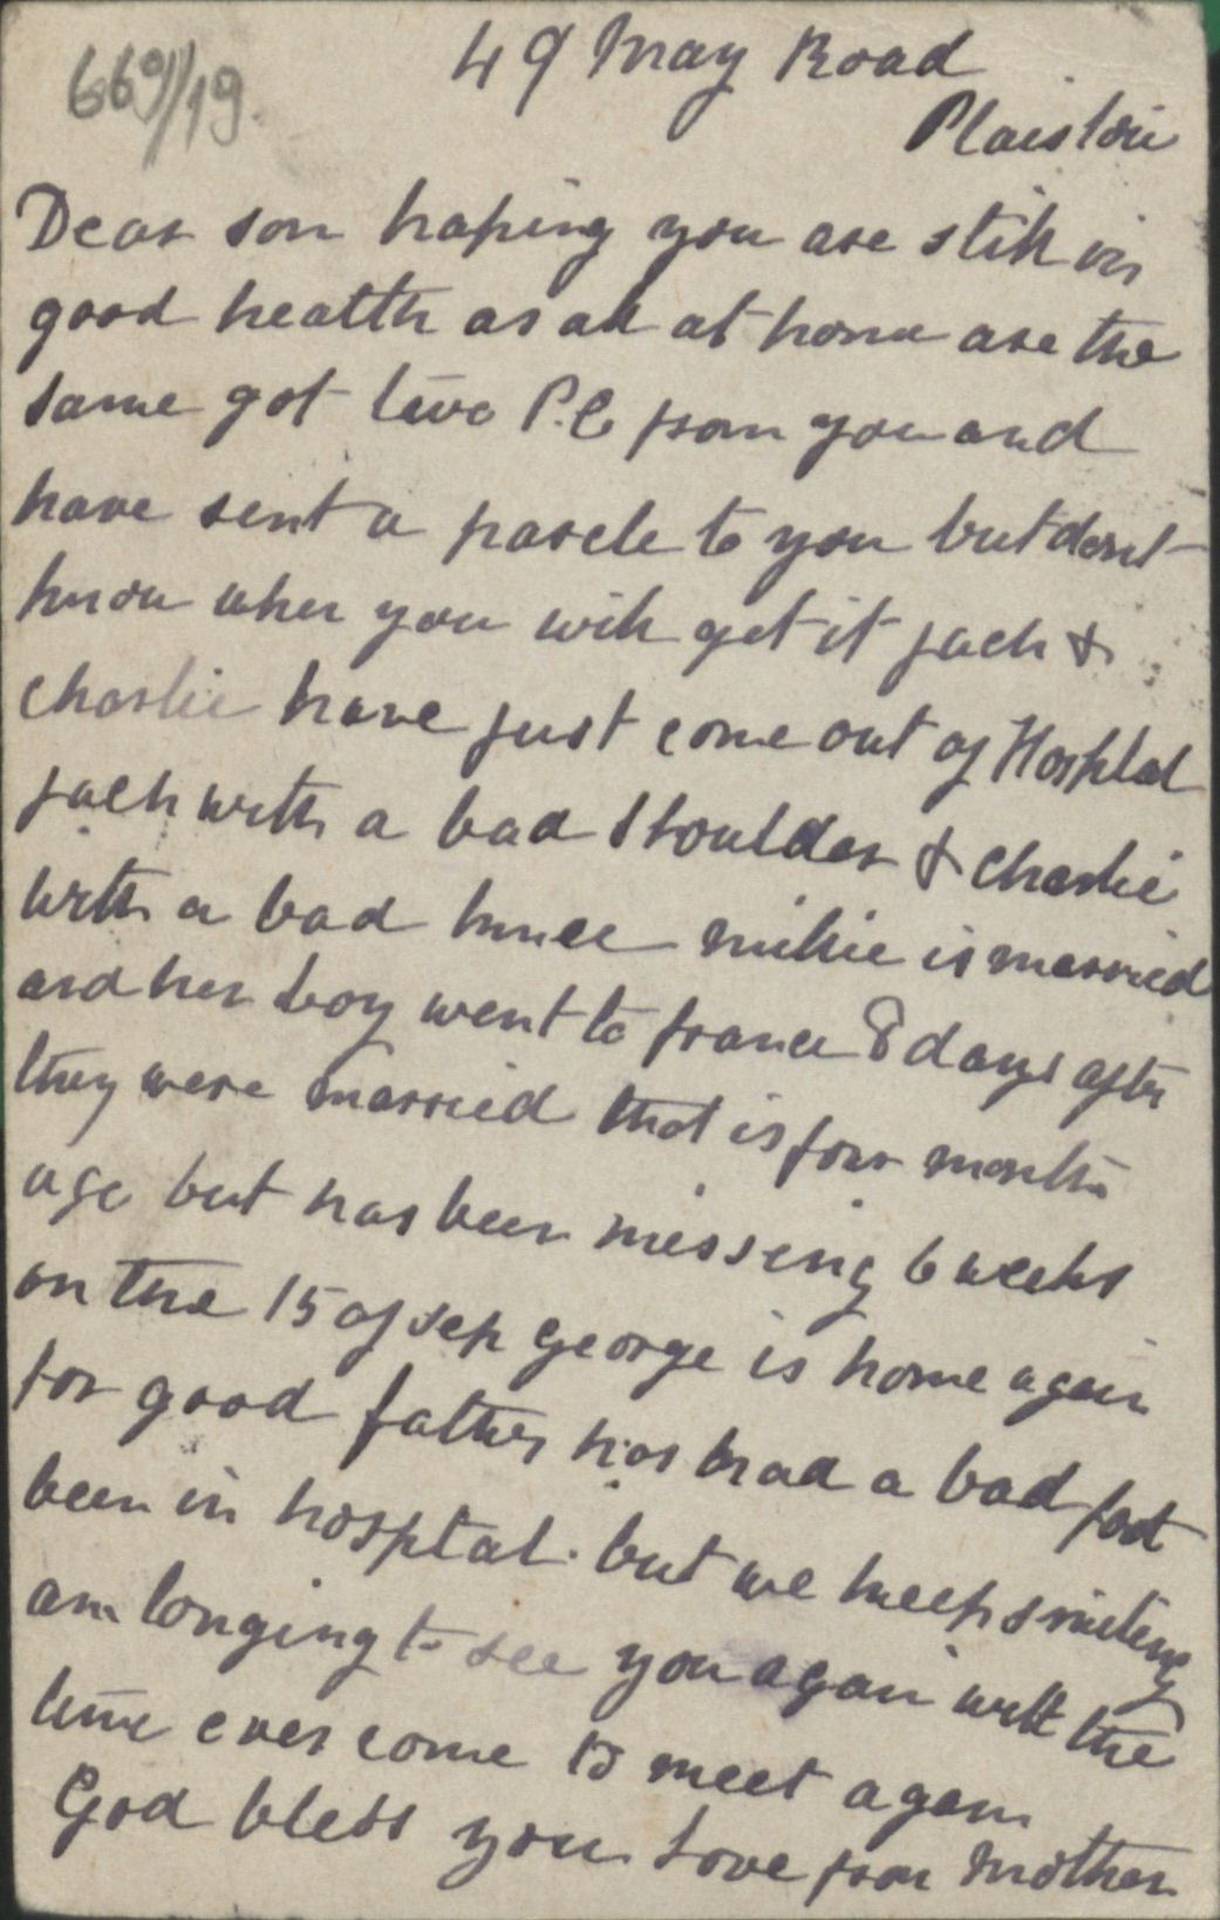 669/19.
49 May Road
Plaistow
Dear son hoping you are still in
good health as all at home are the
same got two P.C from you and
have sent a parcle to you but dont
know when you will get it jack &
charlie have just come out of Hosptal
jack with a bad shoulder & Charlie
with a bad knee millie is married
and her boy went to france 8 days after
they were married that is four months
ago but has been missing 6 weeks
on the 15 of sep george is home again
for good father has had a bad foot
been in hosptal. but we keep smileing
am longing to see you again will the
time ever come to meet again
God bless you Love from Mother